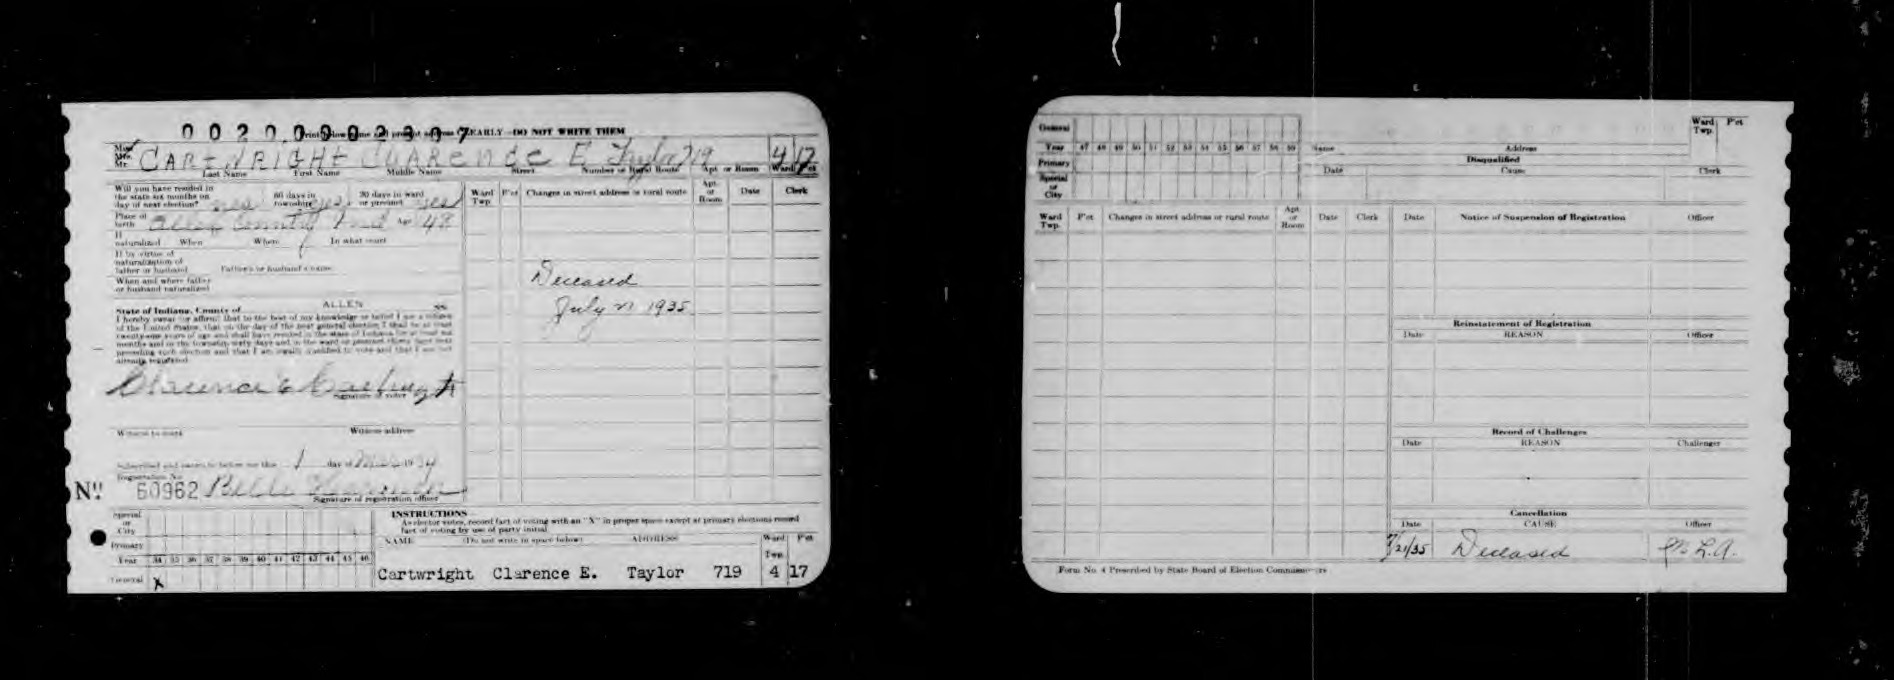 0020.0002307
Print below name and present address CLEARLY—DO NOT WRITE THEM
Miss
Mrs.
Mr. CARTWRIGHT CLARENCE E Taylor 719 4 17
Last Name First Name Middle Name Street Number or Rural Route Apt or Room Ward Pct
Will you have resided in
the state six months on
day of next election? yes 60 days in
township yes 30 days in ward
or precinct yes
Place of
birth Allen County Ind Age 48
If
naturalized When Where In what court
If by virtue of
naturalization of
father or husband Father's or husband's name
When and where father
or husband naturalized
State of Indiana, County of ALLEN SS
I hereby swear (or affirm) that to the best of my knowledge or belief I am a citizen
of the United States, that on the day of the next general election I shall be at least
twenty-one years of age and shall have resided in the state of Indiana for at least six
months and in the township sixty days and in the ward or precinct thirty days next
preceding such election and that I am legally qualified to vote and that I am not
already registered
Clarence E Cartwright
Signature of voter
Witness to mark Witness address
Subscribed and sworn to before me this 1 day of 19 34
Registration No
No. 60962 Belle
Signature of registration officer
Ward
Twp. P'ct Changes in street address or rural route Apt.
or
Room Date Clerk
Deceased
July 21 1935
Special
or
City
Primary
Year 34 35 36 37 38 39 40 41 42 43 44 45 46
General X
INSTRUCTIONS
As elector votes, record fact of voting with an "X" in proper space except at primary elections record
fact of voting by use of party initial
NAME (Do not write in space below) ADDRESS Ward
Twp. P'ct
Cartwright Clarence E. Taylor 719 4 17
General
Year 47 48 49 50 51 52 53 54 55 56 57 58 59
Primary
Special
or
City
Name Address Ward
Twp. P'ct
Disqualified
Date Cause Clerk
Ward
Twp. P'ct Changes in street address or rural route Apt
or
Room Date Clerk
Date Notice of Suspension of Registration Officer
Reinstatement of Registration
Date REASON Officer
Record of Challenges
Date REASON Challenger
Cancellation
Date CAUSE Officer
7/21/35 Deceased L.A.
Form No. 4 Prescribed by State Board of Election Commissioners